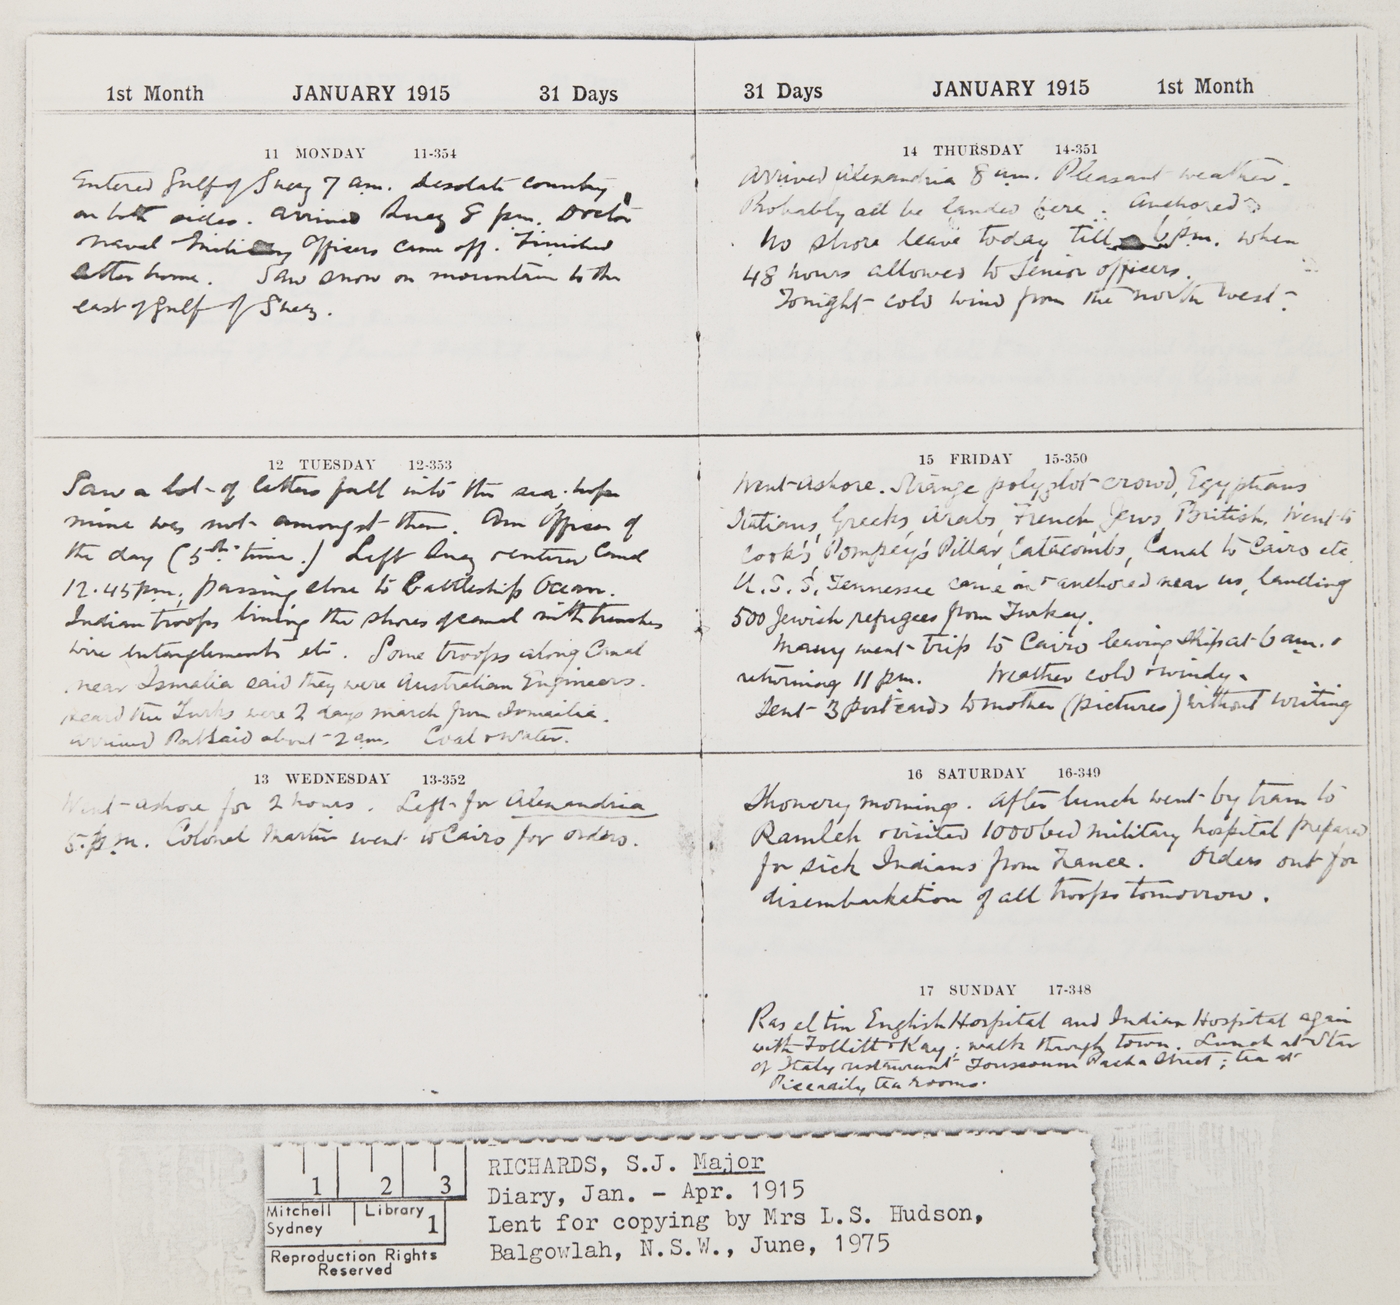 1st Month JANUARY 1915 31 Days
11 MONDAY 11-354
Entered Gulf of Suez 7 am. Desolate country
on both sides. Arrived Suez 8 pm. Doctor
naval & military Officers came off. Finished
letter home. Saw snow on mountain to the
east of Gulf of Suez.
12 TUESDAY 12-353
Saw a lot of letters fall into the sea. hope
mine was not amongst them. Am Officer of
the day (5th time.) Left Suez & entered Canal
12.45 pm, passing close to Battleship Ocean.
Indian troops lining the shores of canal with trenches
wire entanglements etc. Some troops along Canal
near Ismalia said they were Australian Engineers.
Heard the Turks were 2 days march from Ismailia.
arrived Port Said about 2 am. Coal & water.
13 WEDNESDAY 13-352
Went ashore for 2 hours. Left for Alexandria
5. p.m. Colonel Martin went to Cairo for orders.
31 Days JANUARY 1915 1st Month
14 THURSDAY 14-351
Arrived Alexandria 8 am. Pleasant weather.
Probably all be landed here. Anchored
No shore leave today till 6 pm. when
48 hours allowed to Senior officers.
Tonight cold wind from the north west.
15 FRIDAY 15-350
Went ashore. Strange polyglot crowd, Egyptians
Italians, Greeks, Arabs, French, Jews, British. Went to
Cook's, Pompey's Pillar, Catacombs, Canal to Cairo etc
U.S.S. Tennessee came in & anchored near us, landing
500 Jewish refugees from Turkey.
Many went trip to Cairo leaving Ship at 6 am. &
returning 11 pm. Weather cold & windy.
Sent 3 postcards to mother (pictures) without writing
16 SATURDAY 16-349
Showery morning. After lunch went by tram to
Ramleh & visited 1000 bed military hospital prepared
for sick Indians from France. Orders out for
disembarkation of all troops tomorrow.
17 SUNDAY 17-348
Ras el tin English Hospital and Indian Hospital again
with Follitt & Kay; walk through town. Lunch at Star
of Italy restaurant Toussoum Pacha Street; tea at
Piccadily tea rooms.
1 2 3
Mitchell Library 1
Sydney
Reproduction Rights
Reserved
RICHARDS, S.J. Major
Diary, Jan. - Apr. 1915
Lent for copying by Mrs L.S. Hudson,
Balgowlah, N.S.W., June, 1975